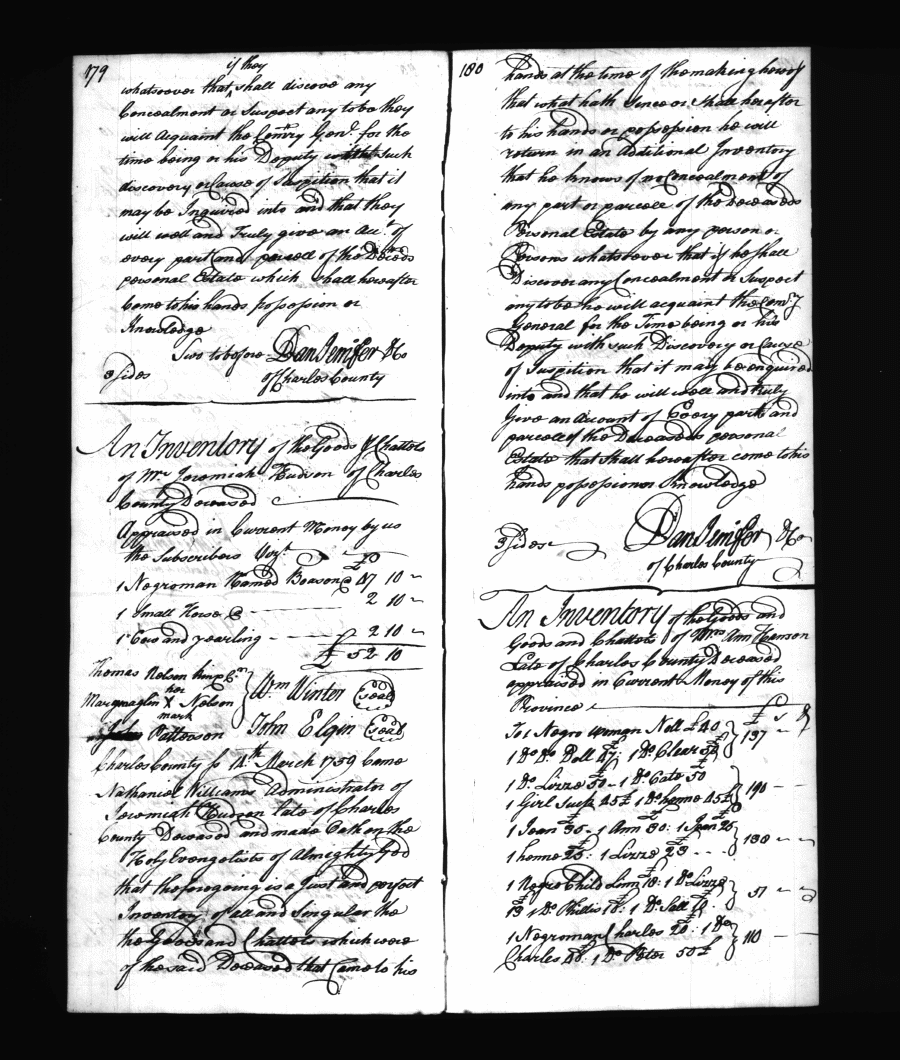 179
if they
whatsoever that ^ shall discover any
Concealment or Suspect any to be they
will Acquaint the Comry Genl. for the
time being or his Deputy with such
discovery or Cause of Suspition that it
may be Inquired into and that they
will well and Truly give an Acct. of
every part and parcell of the Deceds
personal Estate which shall hereafter
Come to his hands possession or
Knowledge
Swo to before Dan Jenifer &Co
3 sides of Charles County
An Inventory of the Goods & Chattels
of Mr. Jeremiah Hudson of Charles
County Deceased
Appraised in Current Money by us
the Subscribers Vizt.
£
1 Negro man Named Beason @ 47 10 ~
1 Small Horse @ 2 10 ~
1 Cow and yearling 2 10 ~
£ 52 10
Thomas Nelson
her
Margnaglin X Nelson
mark
Patterson
Wm Winter Seal
John Elgin Seal
Charles County ss 14th March 1759 Came
Nathaniel Williams Administrator of
Jeremiah Hudson late of Charles
County Deceased and made Oath on the
Holy Evangelists of Almighty God
that the foregoing is a Just and perfect
Inventory of all and Singular the
the Goods and Chattels which were
of the said Deceased that Came to his
180
hands at the time of the making hereof
that what hath Since or Shall hereafter
to his hands or possession he will
return in an Additional Inventory
that he knows of no Concealment of
any part or parcell of the Deceaseds
Personal Estate by any person or
Persons whatsoever that if he shall
Discover any Concealment or Suspect
any to be he will acquaint the Comry
General for the Time being or his
Deputy with such Discovery or Cause
of Suspition that it may be enquired
into and that he will well and truly
Give an Account of Every part and
parcell of the Deceaseds personal
Estate that Shall hereafter come to his
hands possession or Knowledge
3 sides Dan Jenifer &Co
of Charles County
An Inventory of the Goods and
Goods and Chattels of Mrs Ann Henson
Late of Charles County Deceased
appraised in Current Money of this
Province £ s d
To 1 Negro woman Nell £40
1 Do. Do. Doll 47: 1 Do. Clear 50 } 137 ~ ~
1 Do. Lizze 50 - 1 Do. Cate 50
1 Girl Suck 45£ 1 Do. henne 45£ } 190 - -
1 Jean 35 - 1 Ann 30: 1 Jean 25
1 henne 25: 1 Lizze 23 } 138 ~ ~
1 Negro Child Linn 18: 1 Do. Lizze
13 1 Do. Phillis 10: 1 Do. Sall 10. } 51 ~ ~
1 Negro man Charles 20: 1 Do.
Charles 40: 1 Do. Peter 50£ } 110 - -